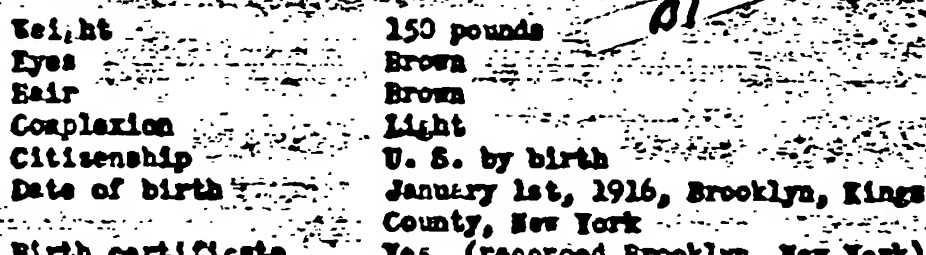 Weight 150 pounds
Eyes Brown
Hair Brown
Complexion Light
Citizenship U. S. by birth
Date of birth January 1st, 1916, Brooklyn, Kings
County, New York
Birth certificate Yes (recorded Brooklyn, New York)